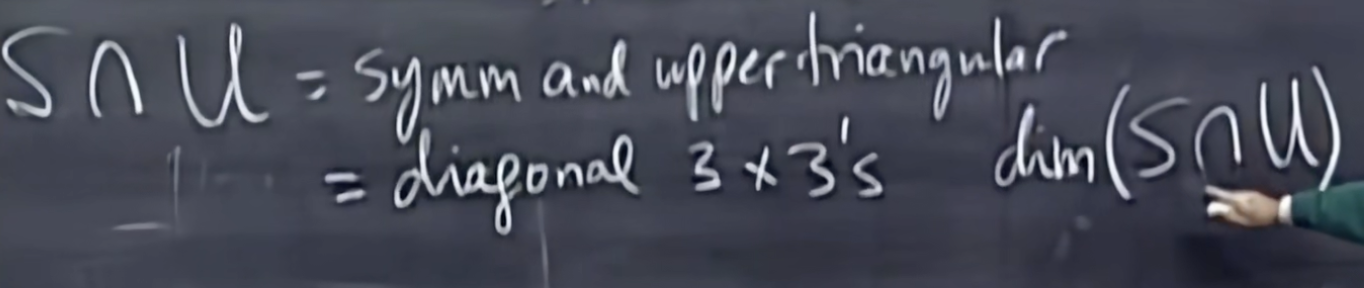 S ∩ U = symm and upper triangular
= diagonal 3 x 3's dim(S ∩ U)